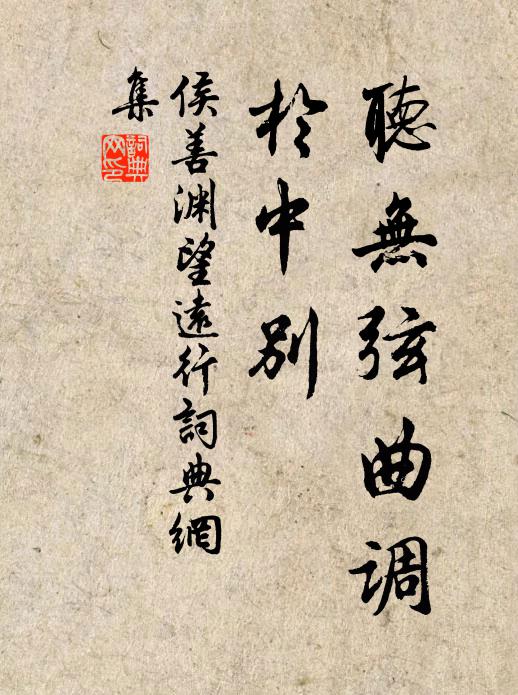 聽無弦曲调
於中别
侯善渊望遠行詞典網
集
詞典
网印